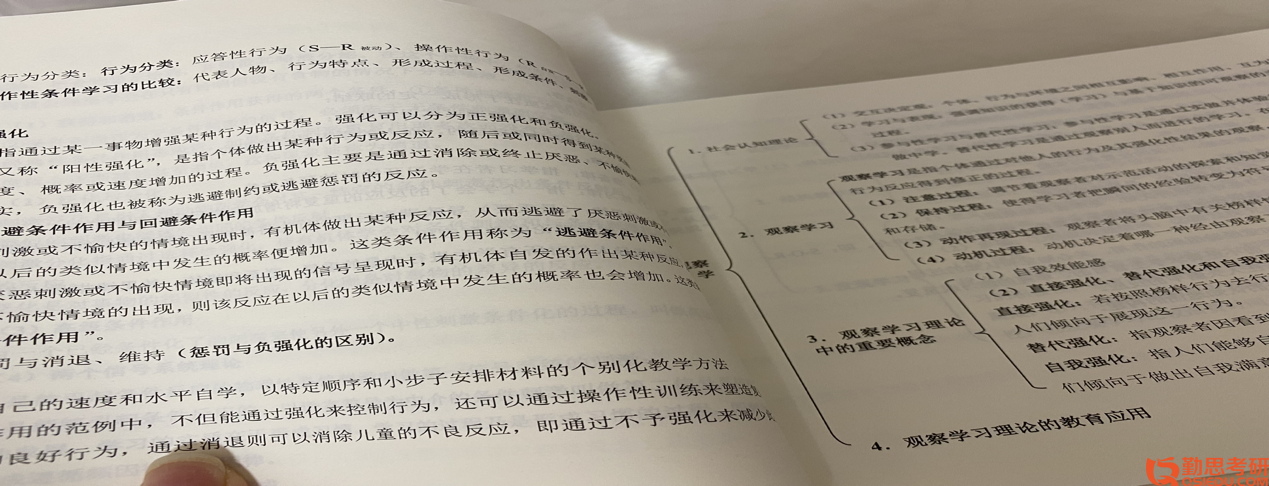 行为分类：行为分类：应答性行为（S—R 被动）、操作性行为（R
作性条件学习的比较：代表人物、行为特点、形成过程、形成条件、
强化
指通过某一事物增强某种行为的过程。强化可以分为正强化和负强化。
又称“阳性强化”，是指个体做出某种行为或反应，随后或同时得到某种
度、概率或速度增加的过程。负强化主要是通过消除或终止厌恶、不愉快
实，负强化也被称为逃避制约或逃避惩罚的反应。
避条件作用与回避条件作用
刺激或不愉快的情境出现时，有机体做出某种反应，从而逃避了厌恶刺激或
以后的类似情境中发生的概率便增加。这类条件作用称为“逃避条件作用”。
恶刺激或不愉快情境即将出现的信号呈现时，有机体自发的作出某种反应
愉快情境的出现，则该反应在以后的类似情境中发生的概率也会增加。这
件作用”。
罚与消退、维持（惩罚与负强化的区别）。
自己的速度和水平自学，以特定顺序和小步子安排材料的个别化教学方法
作用的范例中，不但能通过强化来控制行为，还可以通过操作性训练来塑造
良好行为，通过消退则可以消除儿童的不良反应，即通过不予强化来减少
察
学
1．社会认知理论
（1）交互决定观。个体、行为与环境之间相互影响、相互作用、互为
（2）学习与表现。强调知识的获得（学习）与基于知识的可观察的
过程。
（3）参与性学习与替代性学习。参与性学习是通过实做并体验
做中学。替代性学习是通过观察别人而进行的学习。在
2．观察学习
观察学习是指个体通过对他人的行为及其强化性结果的观察
行为反应得到修正的过程。
（1）注意过程：调节着观察者对示范活动的探索和知觉
（2）保持过程：使得学习者把瞬间的经验转变为符号
和存储。
（3）动作再现过程：观察者将头脑中有关榜样
（4）动机过程：动机决定着哪一种经由观察
3．观察学习理论
中的重要概念
（1）自我效能感
（2）直接强化、替代强化和自我强
直接强化：若按照榜样行为去行
人们倾向于展现这一行为。
替代强化：指观察者因看到
自我强化：指人们能够自
们倾向于做出自我满意
4．观察学习理论的教育应用
勤思考研